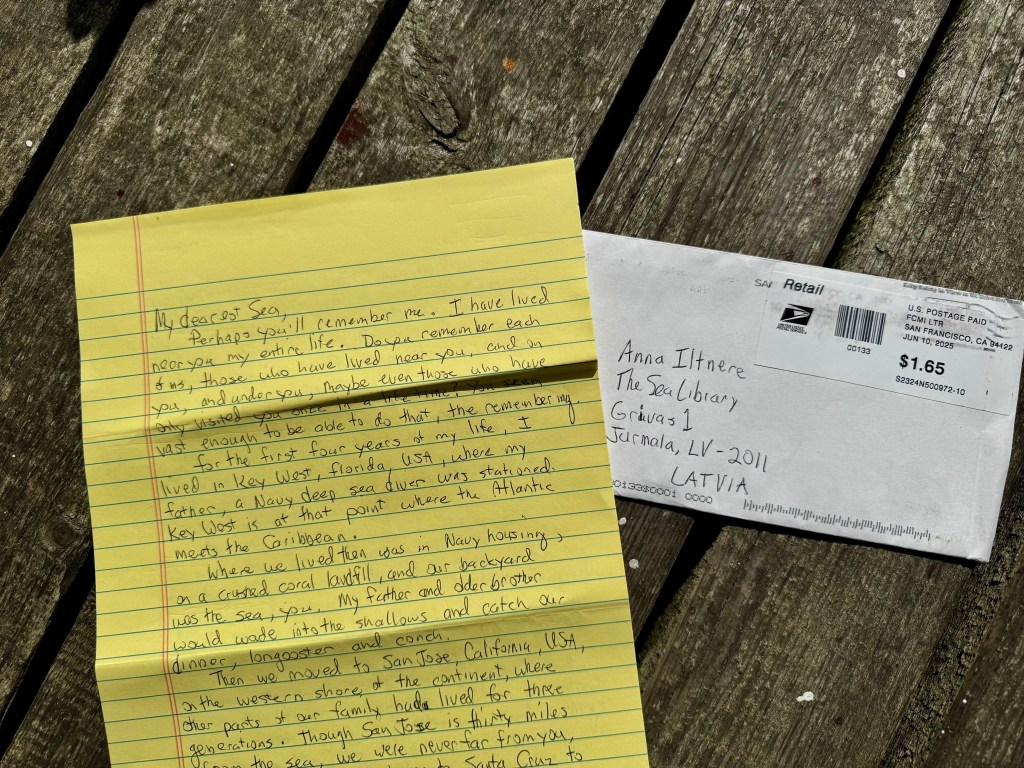 My dearest Sea,
Perhaps you'll remember me. I have lived
near you my entire life. Do you remember each
of us, those who have lived near you, and on
you, and under you, maybe even those who have
only visited you once in a life time? You seem
vast enough to be able to do that, the remembering.
For the first four years of my life, I
lived in Key West, Florida, USA, where my
father, a Navy deep sea diver was stationed.
Key West is at that point where the Atlantic
meets the Caribbean.
Where we lived then was in Navy housing,
on a crushed coral landfill, and our backyard
was the sea, you. My father and older brother
would wade into the shallows and catch our
dinner, longooster and conch.
Then we moved to San Jose, California, USA,
on the western shore, of the continent, where
other parts of our family had lived for three
generations. Though San Jose is thirty miles
from the sea, we were never far from you,
to Santa Cruz to
Retail
U.S. POSTAGE PAID
FCMI LTR
SAN FRANCISCO, CA 94422
JUN 10, 2025
00133
$1.65
S2324N500972-10
Anna Iltnere
The Sea Library
Grivas 1
Jurmala, LV-2011
LATVIA
0133$0001 0000